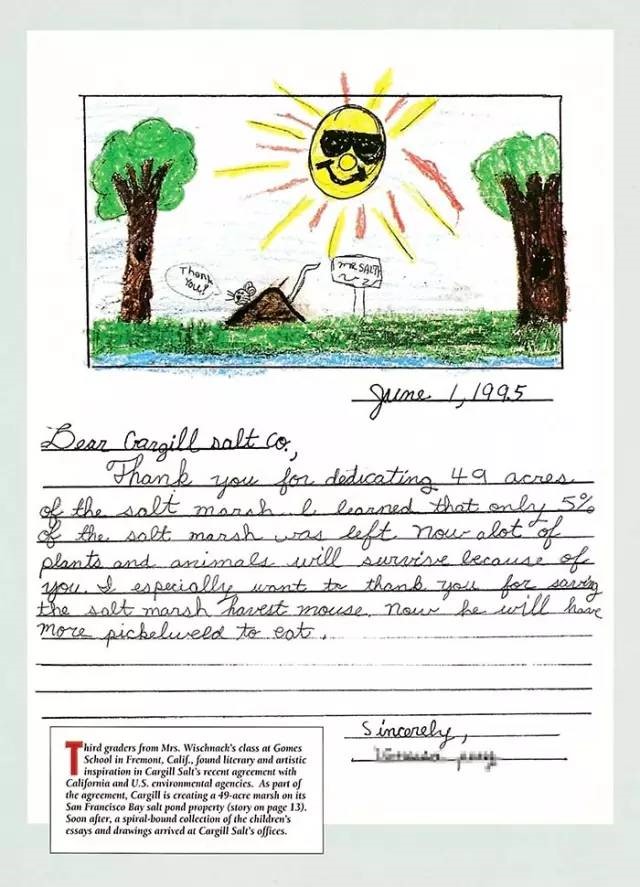 Thank
You!
MR. SALT
June 1, 1995
Dear Cargill salt Co.,
Thank you for dedicating 49 acres
of the salt marsh. I learned that only 5%
of the salt marsh was left. Now alot of
plants and animals will survive because of
you. I especially want to thank you for saving
the salt marsh havest mouse. Now he will have
more pickelweed to eat.
Sincerely,
Third graders from Mrs. Wischnack's class at Gomes
School in Fremont, Calif., found literary and artistic
inspiration in Cargill Salt's recent agreement with
California and U.S. environmental agencies. As part of
the agreement, Cargill is creating a 49-acre marsh on its
San Francisco Bay salt pond property (story on page 13).
Soon after, a spiral-bound collection of the children's
essays and drawings arrived at Cargill Salt's offices.